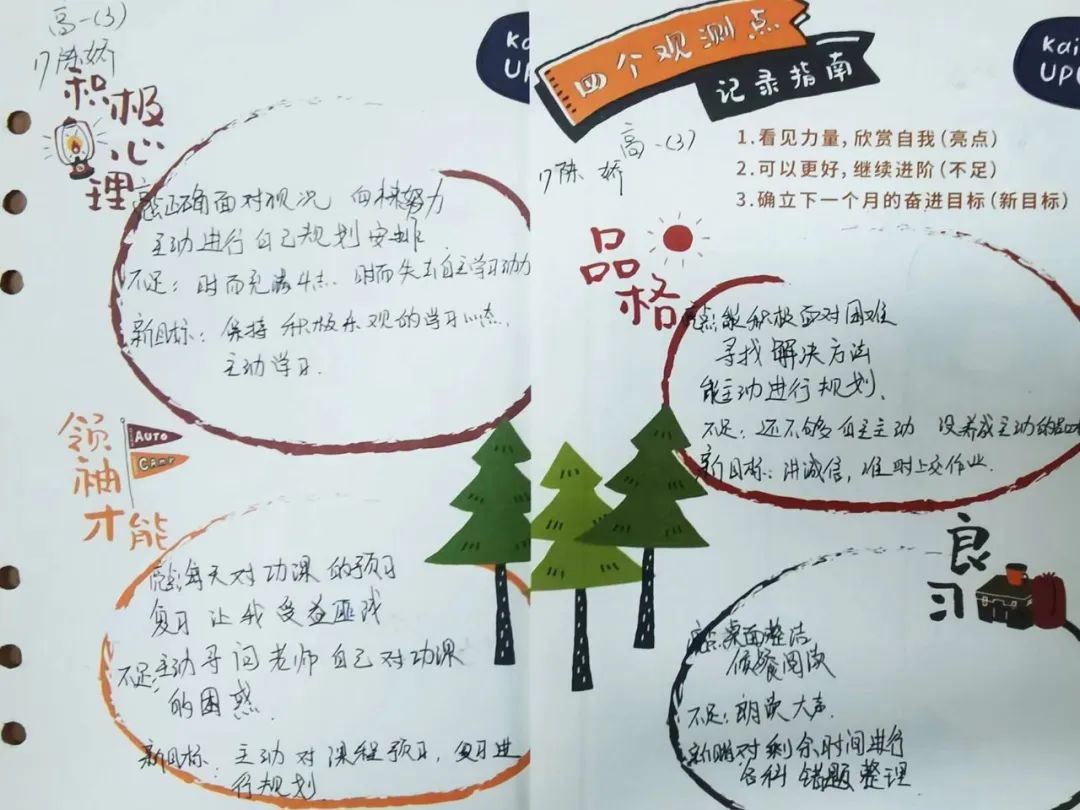 高一(3)
17陈娇
积极心理
Ka
UP
亮点:正确面对现况 向未来努力
主动进行自己规划安排
不足:时而充满斗志、时而失去自主学习动力
新目标:保持积极乐观的学习心态,
主动学习.
领袖才能
AUTO
CAMP
亮点:每天对功课的预习
复习让我受益匪浅
不足:主动寻问老师自己对功课
的困惑.
新目标:主动对课程预习,复习进
行规划.
四个观测点
记录指南
Kai
UP
高一(3)
17陈娇
1.看见力量,欣赏自我(亮点)
2.可以更好,继续进阶(不足)
3.确立下一个月的奋进目标(新目标)
品格
亮点:能积极面对困难
寻找解决方法
能主动进行规划.
不足:还不够自主主动 没养成主动的
新目标:讲诚信,准时上交作业.
良习
亮点:桌面整洁
阅读
不足:朗读大声.
新目标:对剩余时间进行
各科错题整理